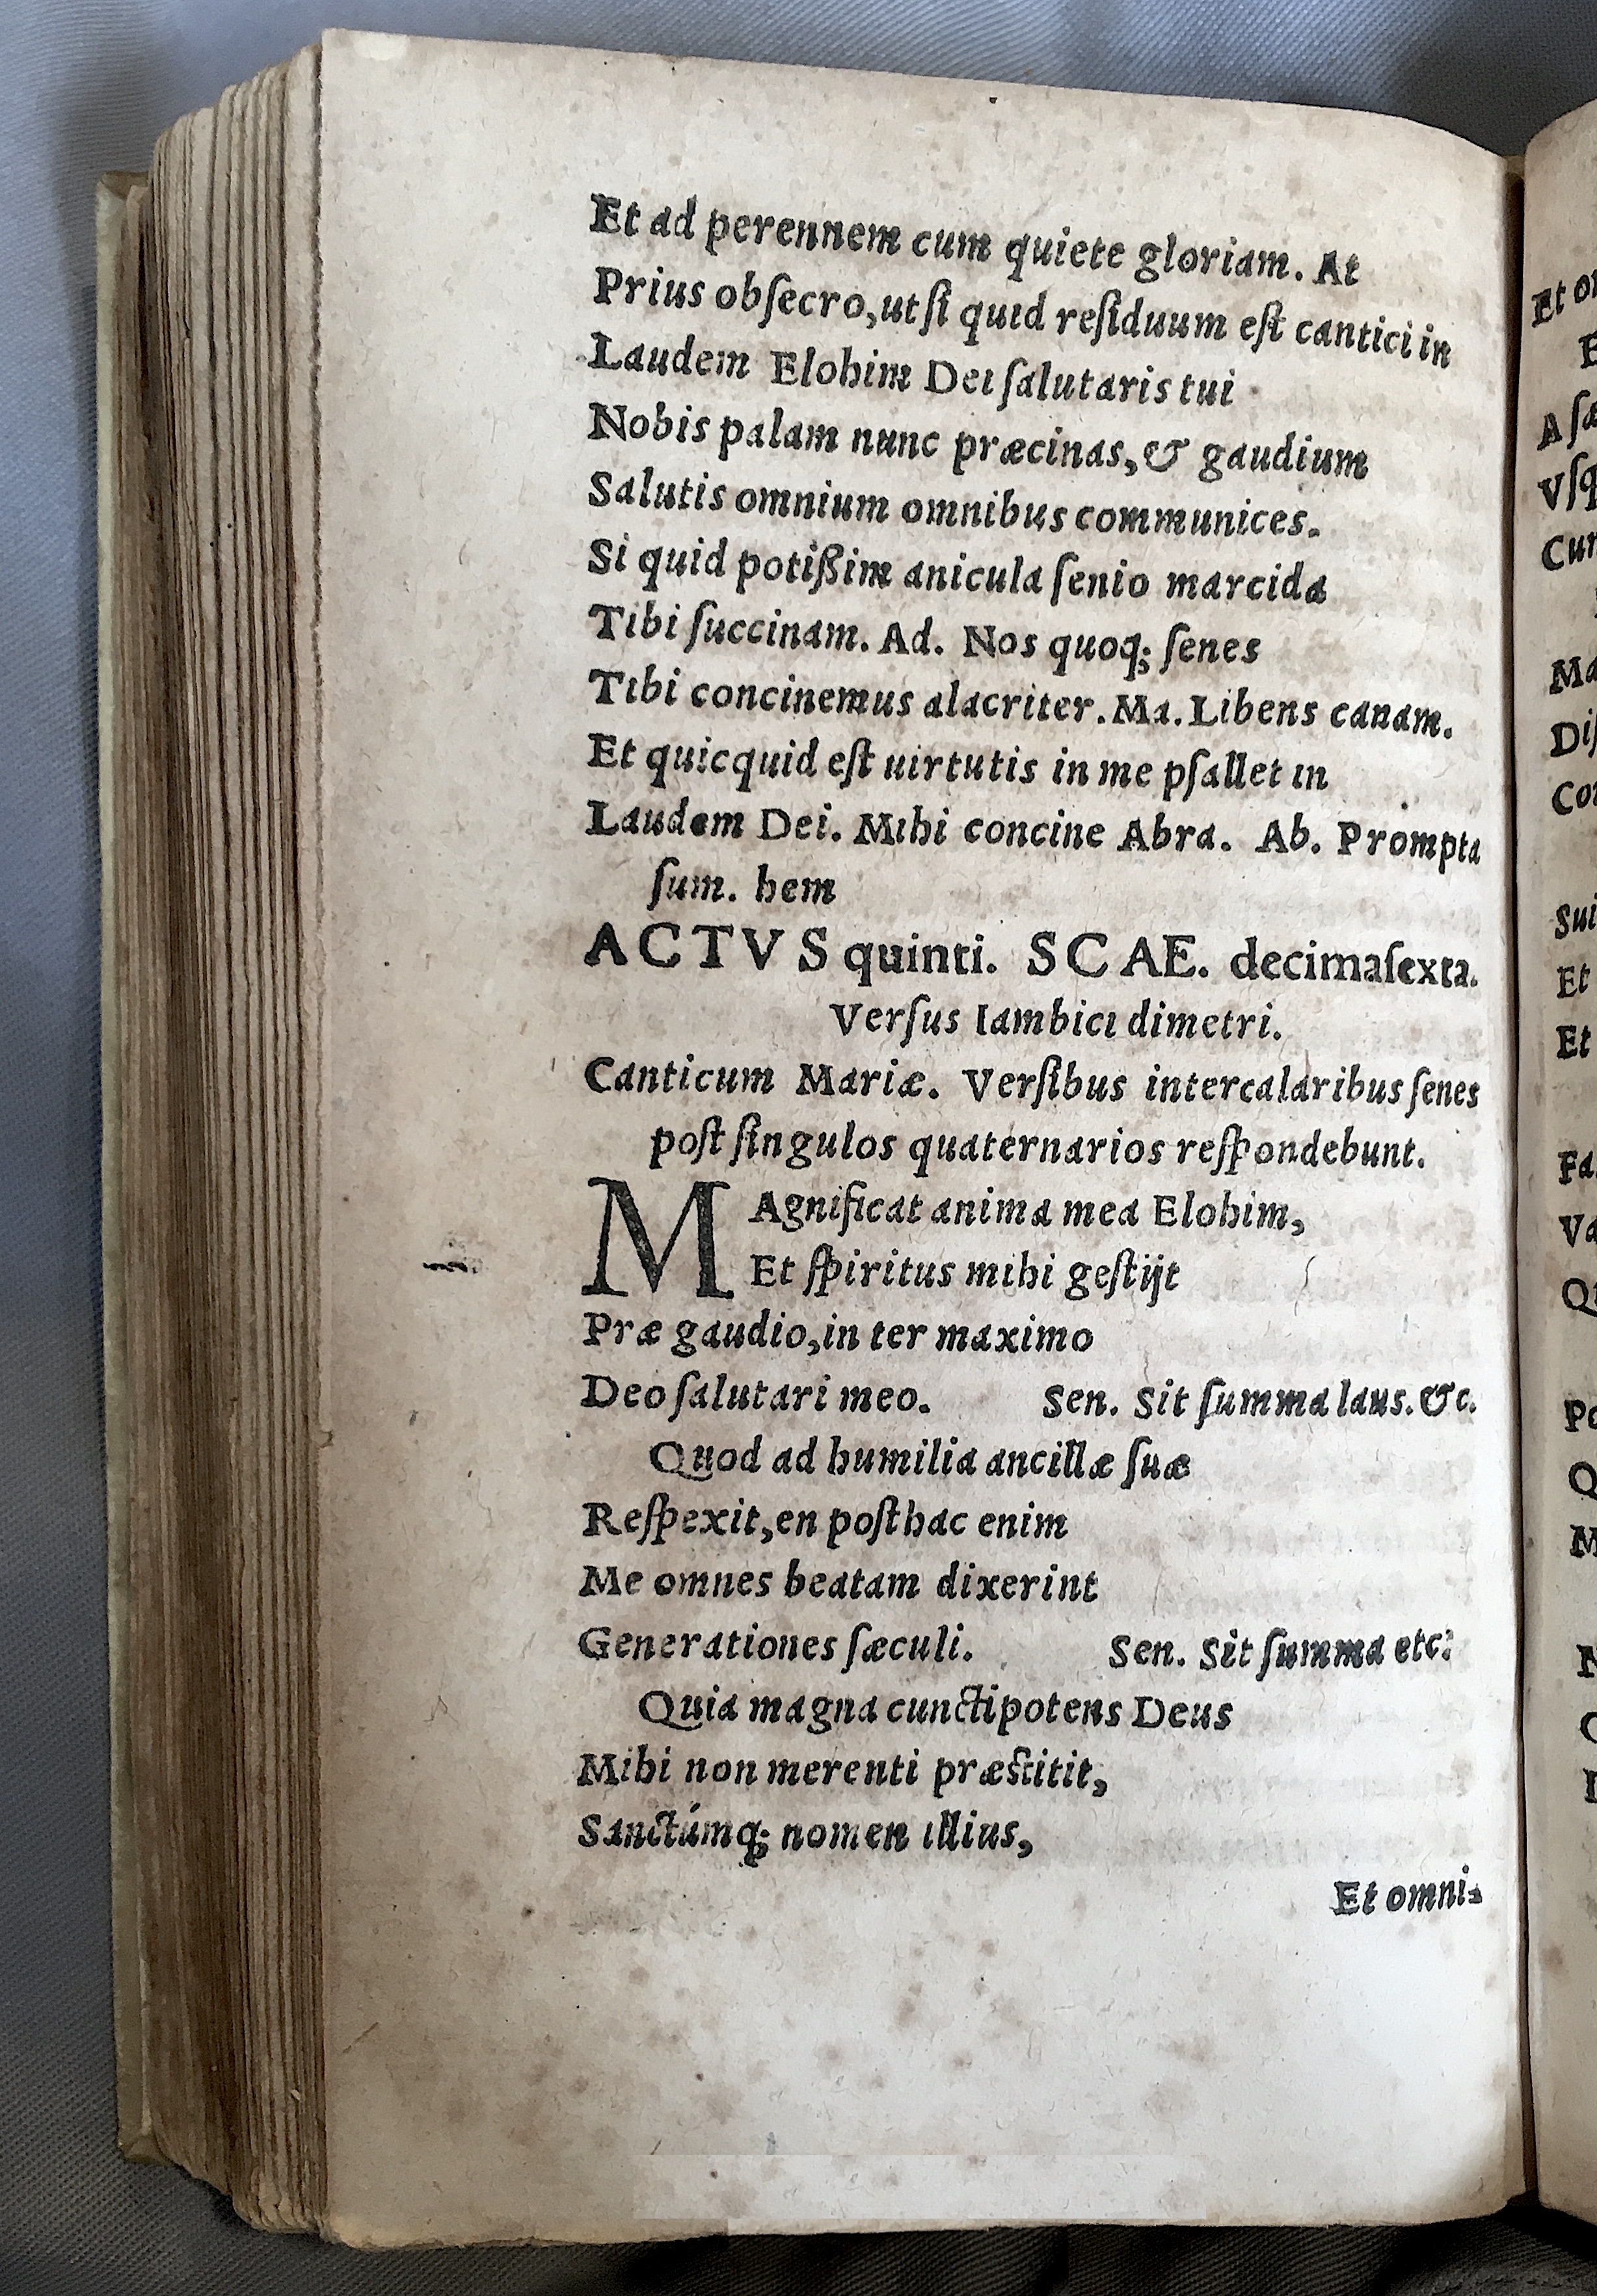 Et ad perennem cum quiete gloriam. At
Prius obſecro,ut ſi quid reſiduum eſt cantici in
Laudem Elohim Dei ſalutaris tui
Nobis palam nunc præcinas,& gaudium
Salutis omnium omnibus communices.
Si quid potißim anicula ſenio marcida
Tibi ſuccinam. Ad. Nos quoq; ſenes
Tibi concinemus alacriter. Ma. Libens canam.
Et quicquid eſt uirtutis in me pſallet in
Laudem Dei. Mihi concine Abra. Ab. Prompta
ſum. hem
ACTVS quinti. SCAE. decimaſexta.
Verſus Iambici dimetri.
Canticum Mariæ. Verſibus intercalaribus ſenes
poſt ſingulos quaternarios reſpondebunt.
MAgnificat anima mea Elohim,
Et ſpiritus mihi geſtijt
Præ gaudio,in ter maximo
Deo ſalutari meo. Sen. Sit ſumma laus.&c.
Quod ad humilia ancillæ ſuæ
Reſpexit,en poſthac enim
Me omnes beatam dixerint
Generationes ſæculi. Sen. Sit ſumma etc:
Quia magna cunctipotens Deus
Mihi non merenti præſtitit,
Sanctúmq; nomen illius,
Et omni-
Et
A
Cur
Ma
Sui
Et
Et